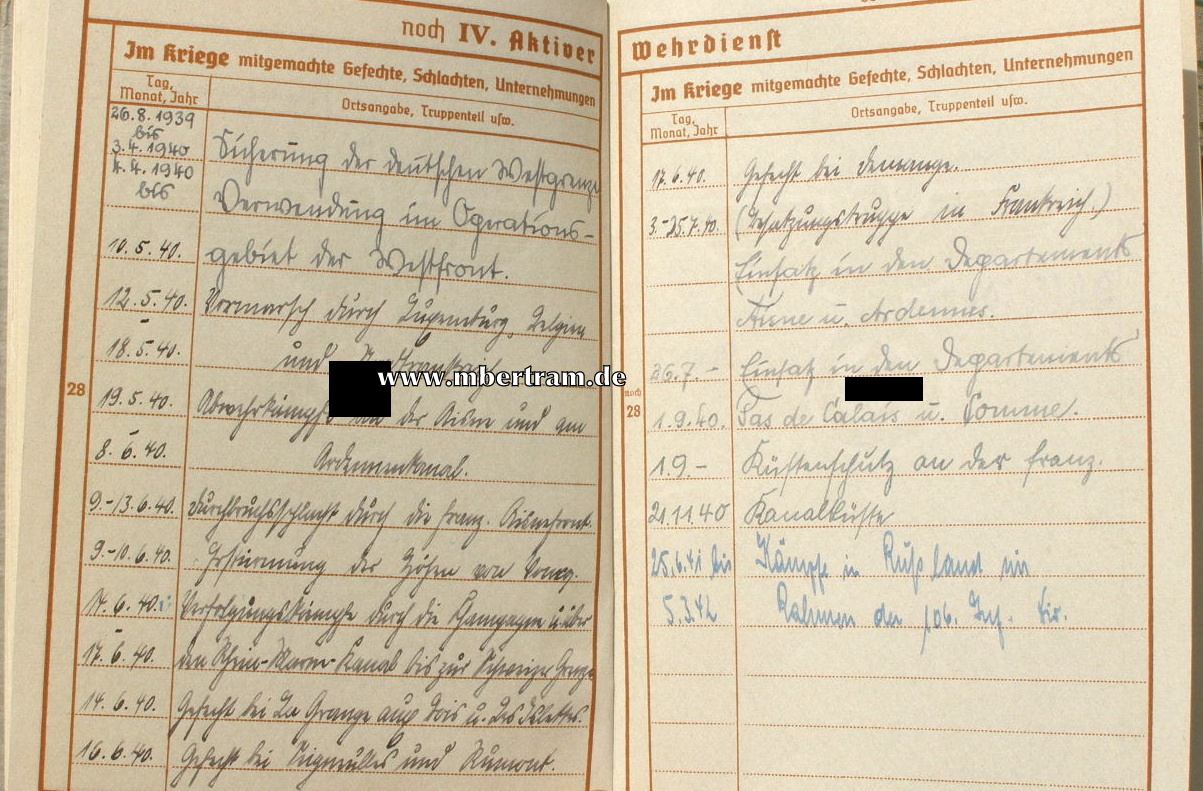 noch IV. Aktiver
Im Kriege mitgemachte Gefechte, Schlachten, Unternehmungen
Tag,
Monat, Jahr
Ortsangabe, Truppenteil usw.
26.8.1939
bis
3.4.1940
Sicherung der deutschen Westgrenze
4.4.1940
bis
Verwendung im Operations-
10.5.40.
gebiet der Westfront.
12.5.40.
Vormarsch durch Luxemburg, Belgien
–
18.5.40.
und Frankreich
www.mbertram.de
28
19.5.40.
Abwehrkämpfe an der Aisne und am
–
8.6.40.
Ardennenkanal.
9.-13.6.40.
Durchbruchsschlacht durch die franz. Aisnefront.
9.-10.6.40.
Erstürmung der Höhen von Voncq.
14.6.40.
Verfolgungskämpfe durch die Champagne u. über
–
17.6.40.
den Rhein-Marne-Kanal bis zur Schweizer Grenze
14.6.40.
Gefecht bei La Grange aux bois u. Des Islettes.
16.6.40.
Gefecht bei und Rumont.
Wehrdienst
Im Kriege mitgemachte Gefechte, Schlachten, Unternehmungen
Tag,
Monat, Jahr
Ortsangabe, Truppenteil usw.
17.6.40.
Gefecht bei Demange.
3.-25.7.40.
(Besatzungstruppe in Frankreich.)
Einsatz in den Departements
Aisne u. Ardennes.
26.7 –
Einsatz in den Departements
noch
28
1.9.40.
Pas de Calais u. Somme.
1.9 –
Küstenschutz an der franz.
21.11.40
Kanalküste
25.6.41 bis
Kämpfe in Rußland im
5.3.42
Rahmen der 106. Inf. Div.